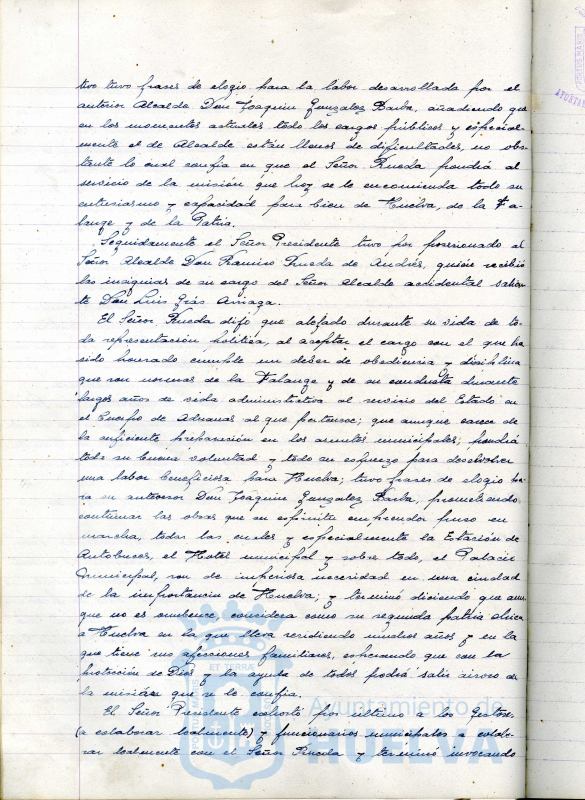 tivo tuvo frases de elogio para la labor desarrollada por el
anterior Alcalde Don Joaquin Gonzalez Barba, añadiendo que
en los momentos actuales todo los cargos públicos y especial-
mente el de Alcalde están llenos de dificultades, no obs-
tante lo cual confia en que el Señor Rueda pondrá al
servicio de la misión que hoy se le encomienda todo su
entusiasmo y capacidad para bien de Huelva, de la Fa-
lange y de la Patria.
Seguidamente el Señor Presidente tuvo por posesionado al
Señor Alcalde Don Ramiro Rueda de Andrés, quien recibió
las insignias de su cargo del Señor Alcalde accidental salien-
te Don Luis Arriaga.
El Señor Rueda dijo que alejado durante su vida de to-
da representación politica, al aceptar el cargo con el que ha
sido honrado cumple un deber de obediencia y disciplina
que son normas de la Falange y de su conducta durante
largos años de vida administrativa al servicio del Estado en
el Cuerpo de Aduanas al que pertenece; que aunque carece de
la suficiente preparación en los asuntos municipales, pondrá
toda su buena voluntad y todo su esfuerzo para desenvolver
una labor beneficiosa para Huelva; tuvo frases de elogio pa-
ra su antecesor Don Joaquin Gonzalez Barba, prometiendo
continuar las obras que su espiritu emprendedor puso en
marcha, todas las cuales y especialmente la Estación de
Autobuses, el Hotel municipal y sobre todo, el Palacio
municipal, son de imperiosa necesidad en una ciudad
de la importancia de Huelva; y terminó diciendo que aun-
que no es onubense, considera como su segunda patria chica
a Huelva en la que lleva residiendo muchos años y en la
que tiene sus afecciones familiares, esperando que con la
protección de Dios y la ayuda de todos podrá salir airoso de
la misión que se le confia.
El Señor Presidente exhortó por último a los Gestores
(a colaborar lealmente) y funcionarios municipales a colabo-
rar lealmente con el Señor Rueda y terminó invocando
ET TERRÆ
Ayuntamiento de
HUELVA